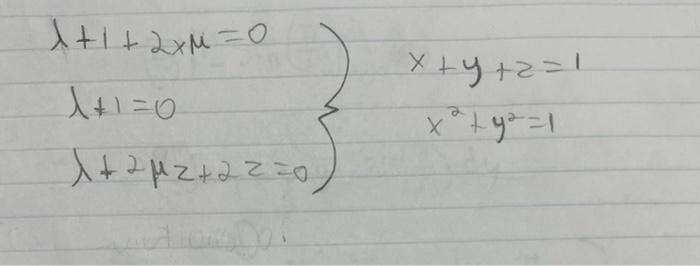 λ+1+2xμ=0
λ+1=0
λ+2μz+2z=0
x+y+z=1
x²+y²=1